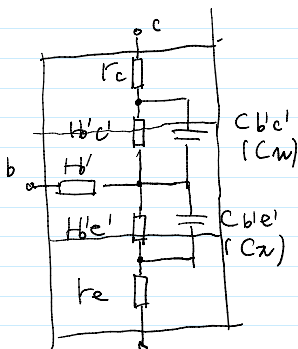 c
rc
Hb'c'
Cb'c'
(Cμ)
b
Hb'
Hb'e'
Cb'e'
(Cπ)
re